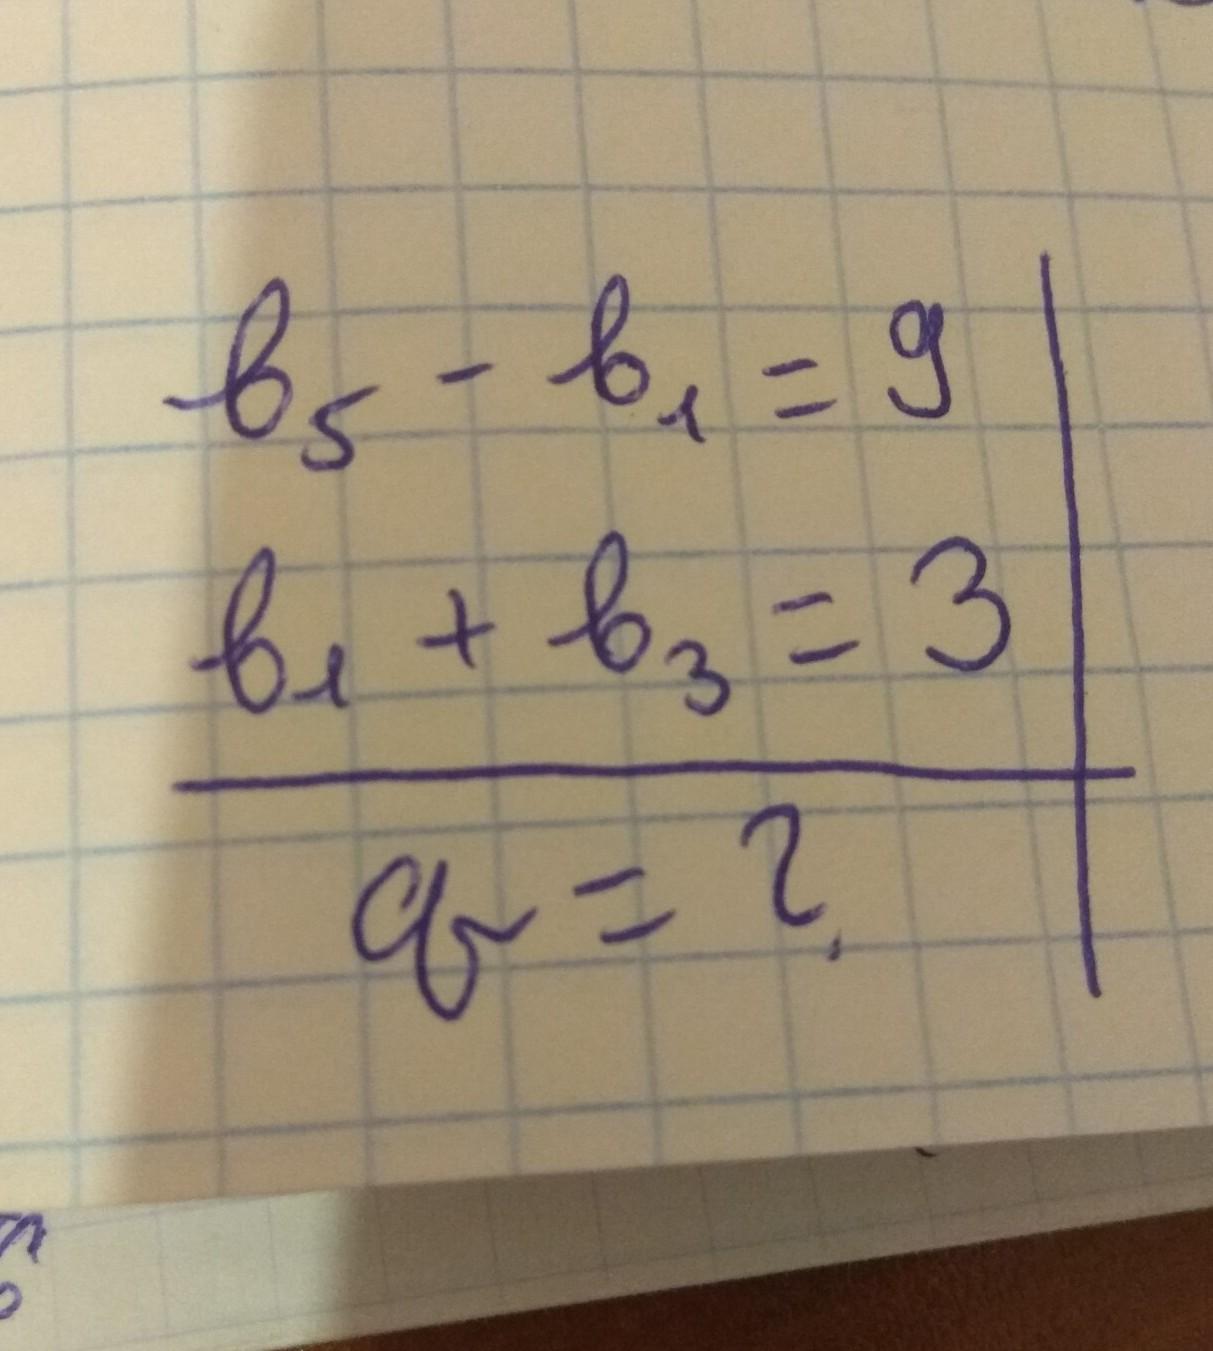 b₅ - b₁ = 9
b₁ + b₃ = 3
q = ?